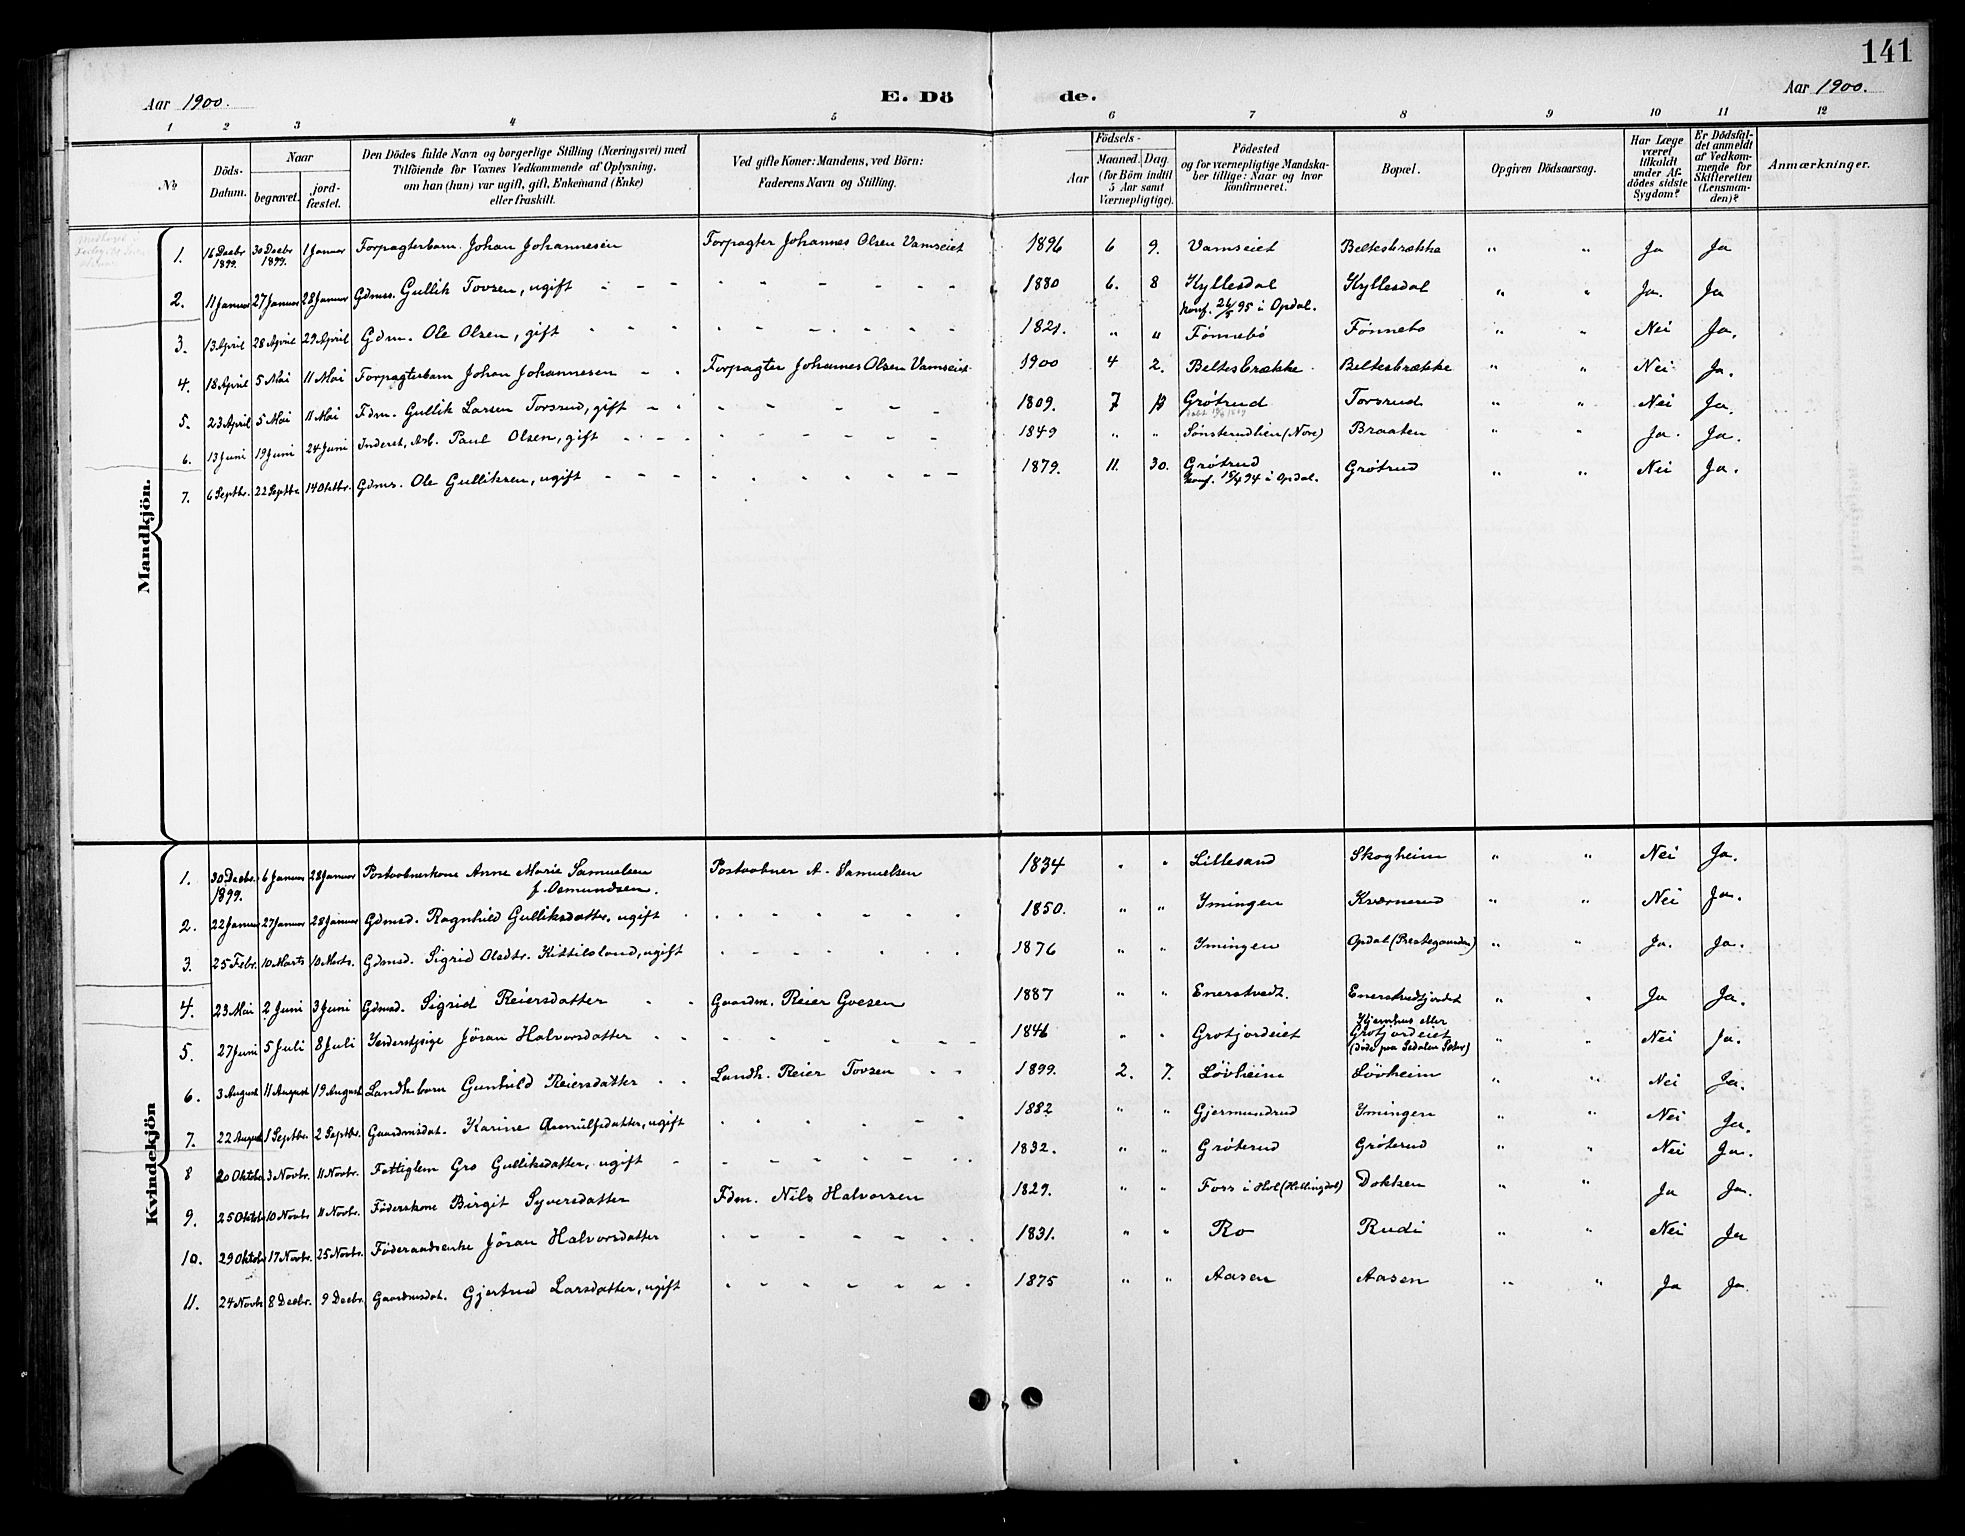 141
Aar 1900. E. Dö de. Aar 1900.
1 2 3 4 5 6 7 8 9 10 11 12
No
Döds-Datum.
Naar begravet. jord-fæstet.
Den Dödes fulde Navn og borgerlige Stilling (Næringsvei) med
Tilföiende for Voxnes Vedkommende af Oplysning,
om han (hun) var ugift, gift, Enkemand (Enke)
eller fraskilt.
Ved gifte Koner: Mandens, ved Börn:
Faderens Navn og Stilling.
Födsels-
Aar Maaned. Dag.
(for Börn indtil
5 Aar samt
Værnepligtige).
Födested
og for værnepligtige Mandska-
ber tillige: Naar og hvor
konfirmeret.
Bopæl.
Opgiven Dödsaarsag.
Har Læge
været
tilkaldt
under Af-
dödes sidste
Sygdom?
Er Dödsfal-
det anmeldt
af Vedkom-
mende for
Skifteretten
(Lensman-
den)?
Anmærkninger.
Mandkjön.
1. 16 Decbr 1899. 30 Decbr 1899. 1 Januar Forpagterbarn Johan Johannesen Forpagter Johannes Olsen Vamseiet 1896 6 9. Vamseiet Beltesbrække " " Ja Ja
2. 11 Januar 27 Januar 28 Januar Gdmss. Gullik Tovsen, ugift 1880 6. 8 Kyllesdal Kyllesdal " " Ja. Ja
konf. 26/5 95 i Opdal.
3. 13 April 28 April 29 April Gdm. Ole Olsen, gift 1821. " " Fønnebö Fønnebo " " Nei Ja.
4. 18 April 5 Mai 11 Mai Forpagterbarn Johan Johannesen Forpagter Johannes Olsen Vamseiet 1900 4 2. Beltesbrække Beltesbrække " " Nei Ja.
5. 23 April 5 Mai 11 Mai Fdm. Gullik Larsen Torsrud, gift 1809. 7 Grøtrud Torsrud " " Nei Ja.
6. 13 Juni 19 Juni 24 Juni Inderst, Arb. Paul Olsen, gift 1849 " " Sønsterudlien (Nore) Braaten " " Ja. Ja.
7. 6 Septbr. 22 Septbr. 14 Oktbr. Gdms. Ole Gulliksen, ugift 1879. 11. 30. Grøtrud Grøtrud " " Nei Ja.
konf. 15/4 94 i Opdal.
Kvindekjön
1. 30 Decbr. 1899. 6 Januar 28 Januar Postaabnerkone Anne Marie Samuelsen Postaabner A. Samuelsen 1834 " " Lillesand Skogheim " " Nei Ja.
f. Osmundsen.
2. 22 Januar 27 Januar 28 Januar Gdmsd. Ragnhild Gulliksdatter, ugift 1850. " " Ymingen Kværnerud " " Nei Ja.
3. 25 Febr. 10 Marts 10 Marts. Gdmsd. Sigrid Olsdtr. Kittilsland, ugift 1876 " " Ymingen Opdal (Prestegaarden) " " Ja. Ja.
4. 23 Mai 2 Juni 3 Juni Gdmsd. Sigrid Reiersdatter Gaardm. Reier Gvesen 1887 " " Enerstvedt. Enerstvedtjordet " " Ja Ja.
5. 27 Juni 5 Juli 8 Juli Jöran Halvorsdatter 1846 " " Grotjordeiet Kjemhus eller
Grotjordeiet " " Nei Ja.
(døde paa Sæter)
6. 3 August 11 August 19 August Landh. barn Gunhild Reiersdatter Landh. Reier Tovsen 1899. 2. 7. Lövheim Lövheim " " Nei Ja.
7. 22 August 1 Septbr. 2 Septbr. Gaardmsdat. Karine Asmulfsdatter, ugift 1882 " " Gjermundrud Ymingen " " Nei Ja.
8 20 Oktobr. 3 Novbr. 11 Novbr. Fattiglem Gro Gulliksdatter, ugift 1832. " " Grøterud Grøterud " " Nei Ja.
9. 25 Oktobr. 10 Novbr 11 Novbr. Föderkone Birgit Syversdatter Fdm. Nils Halvorsen 1829. " " Foss i Hol (Hallingdal) Dokken " " Ja Ja.
10. 29 Oktobr 17 Novbr. 25 Novbr. Föderaadsenke Jöran Halvorsdatter 1831. " " Ro Rudi " " Nei Ja
11. 24 Novbr 8 Decbr. 9 Decbr Gaardmsdat. Gjertrud Larsdatter, ugift 1875 " " Aasen Aasen " " Ja Ja